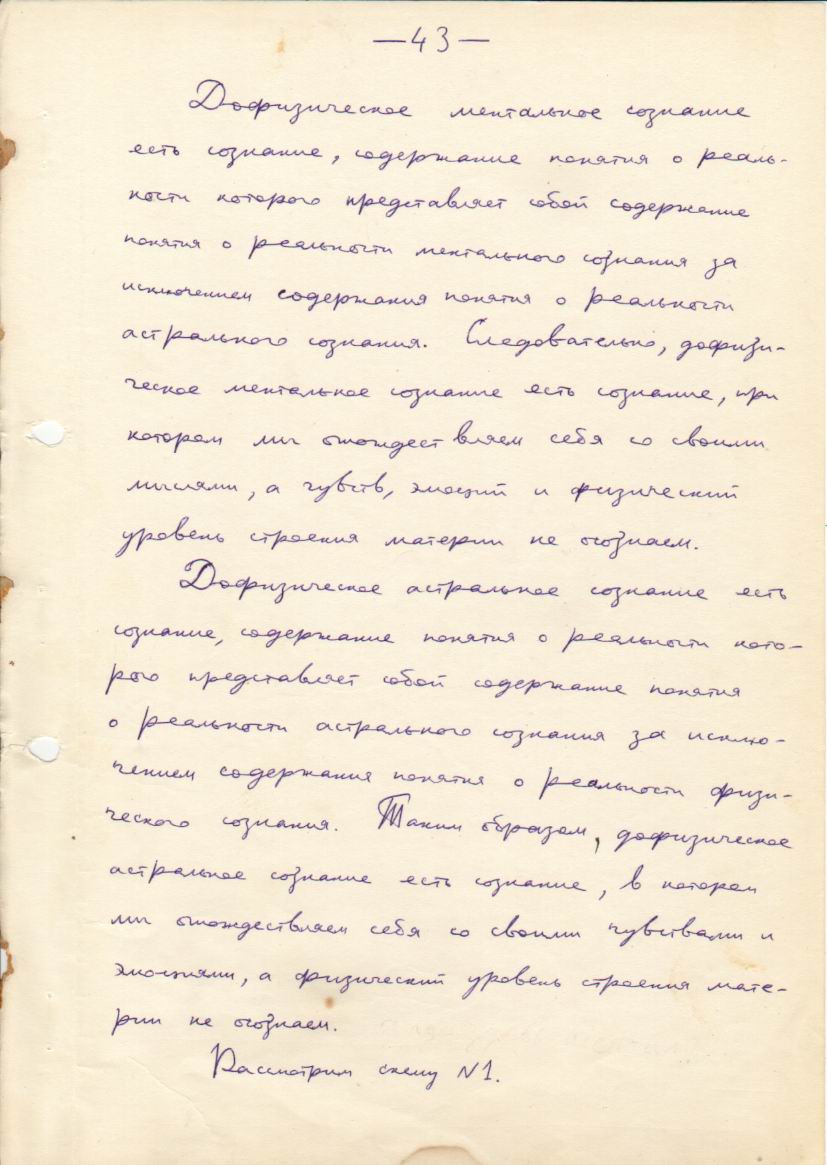 —43—
Дофизическое ментальное сознание
есть сознание, содержание понятия о реаль-
ности которого представляет собой содержание
понятия о реальности ментального сознания за
исключением содержания понятия о реальности
астрального сознания. Следовательно, дофизи-
ческое ментальное сознание есть сознание, при
котором мы отождествляем себя со своими
мыслями, а чувств, эмоций и физический
уровень строения материи не осознаем.
Дофизическое астральное сознание есть
сознание, содержание понятия о реальности кото-
рого представляет собой содержание понятия
о реальности астрального сознания за исклю-
чением содержания понятия о реальности физи-
ческого сознания. Таким образом, дофизическое
астральное сознание есть сознание, в котором
мы отождествляем себя со своими чувствами и
эмоциями, а физический уровень строения мате-
рии не осознаем.
Рассмотрим схему N1.